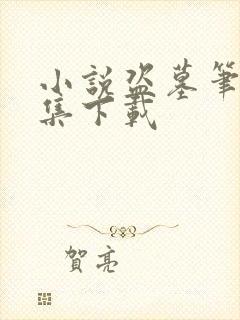 小説盗墓筆
集下載
賀亮